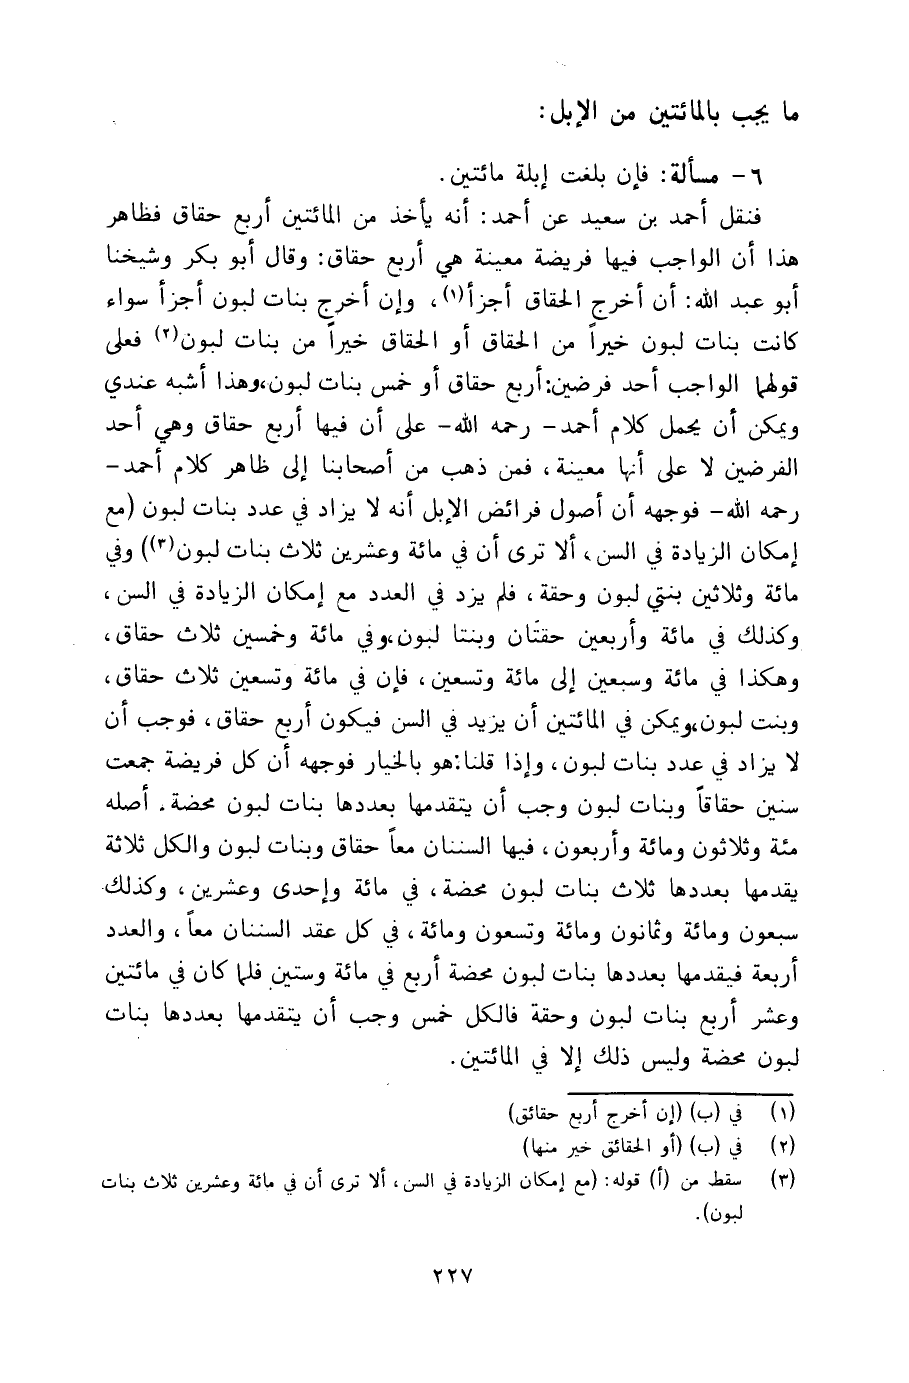 ما يجب بالمائتين من الإبل:
٦- مسألة: فإن بلغت إبلة مائتين.
فنقل أحمد بن سعيد عن أحمد: أنه يأخذ من المائتين أربع حقاق فظاهر
هذا أن الواجب فيها فريضة معينة هي أربع حقاق: وقال أبو بكر وشيخنا
أبو عبد الله: أن أخرج الحقاق أجزأ(١)، وإن أخرج بنات لبون أجزأ سواء
كانت بنات لبون خيراً من الحقاق أو الحقاق خيراً من بنات لبون(٢) فعلى
قولهما الواجب أحد فرضين:أربع حقاق أو خمس بنات لبون،وهذا أشبه عندي
ويمكن أن يحمل كلام أحمد- رحمه الله- على أن فيها أربع حقاق وهي أحد
الفرضين لا على أنها معينة، فمن ذهب من أصحابنا إلى ظاهر كلام أحمد-
رحمه الله- فوجهه أن أصول فرائض الإبل أنه لا يزاد في عدد بنات لبون (مع
إمكان الزيادة في السن، ألا ترى أن في مائة وعشرين ثلاث بنات لبون(٣)) وفي
مائة وثلاثين بنتي لبون وحقة، فلم يزد في العدد مع إمكان الزيادة في السن،
وكذلك في مائة وأربعين حقتان وبنتا لبون،وفي مائة وخمسين ثلاث حقاق،
وهكذا في مائة وسبعين إلى مائة وتسعين، فإن في مائة وتسعين ثلاث حقاق،
وبنت لبون،ويمكن في المائتين أن يزيد في السن فيكون أربع حقاق، فوجب أن
لا يزاد في عدد بنات لبون، وإذا قلنا:هو بالخيار فوجهه أن كل فريضة جمعت
سنين حقاقاً وبنات لبون وجب أن يتقدمها بعددها بنات لبون محضة. أصله
مئة وثلاثون ومائة وأربعون، فيها السننان معاً حقاق وبنات لبون والكل ثلاثة
يقدمها بعددها ثلاث بنات لبون محضة، في مائة وإحدى وعشرين، وكذلك
سبعون ومائة وثمانون ومائة وتسعون ومائة، في كل عقد السننان معاً، والعدد
أربعة فيقدمها بعددها بنات لبون محضة أربع في مائة وستين فلما كان في مائتين
وعشر أربع بنات لبون وحقة فالكل خمس وجب أن يتقدمها بعددها بنات
لبون محضة وليس ذلك إلا في المائتين.
(١) في (ب) (إن أخرج أربع حقائق)
(٢) في (ب) (أو الحقائق خير منها)
(٣) سقط من (أ) قوله: (مع إمكان الزيادة في السن، ألا ترى أن في مائة وعشرين ثلاث بنات
لبون).
٢٢٧